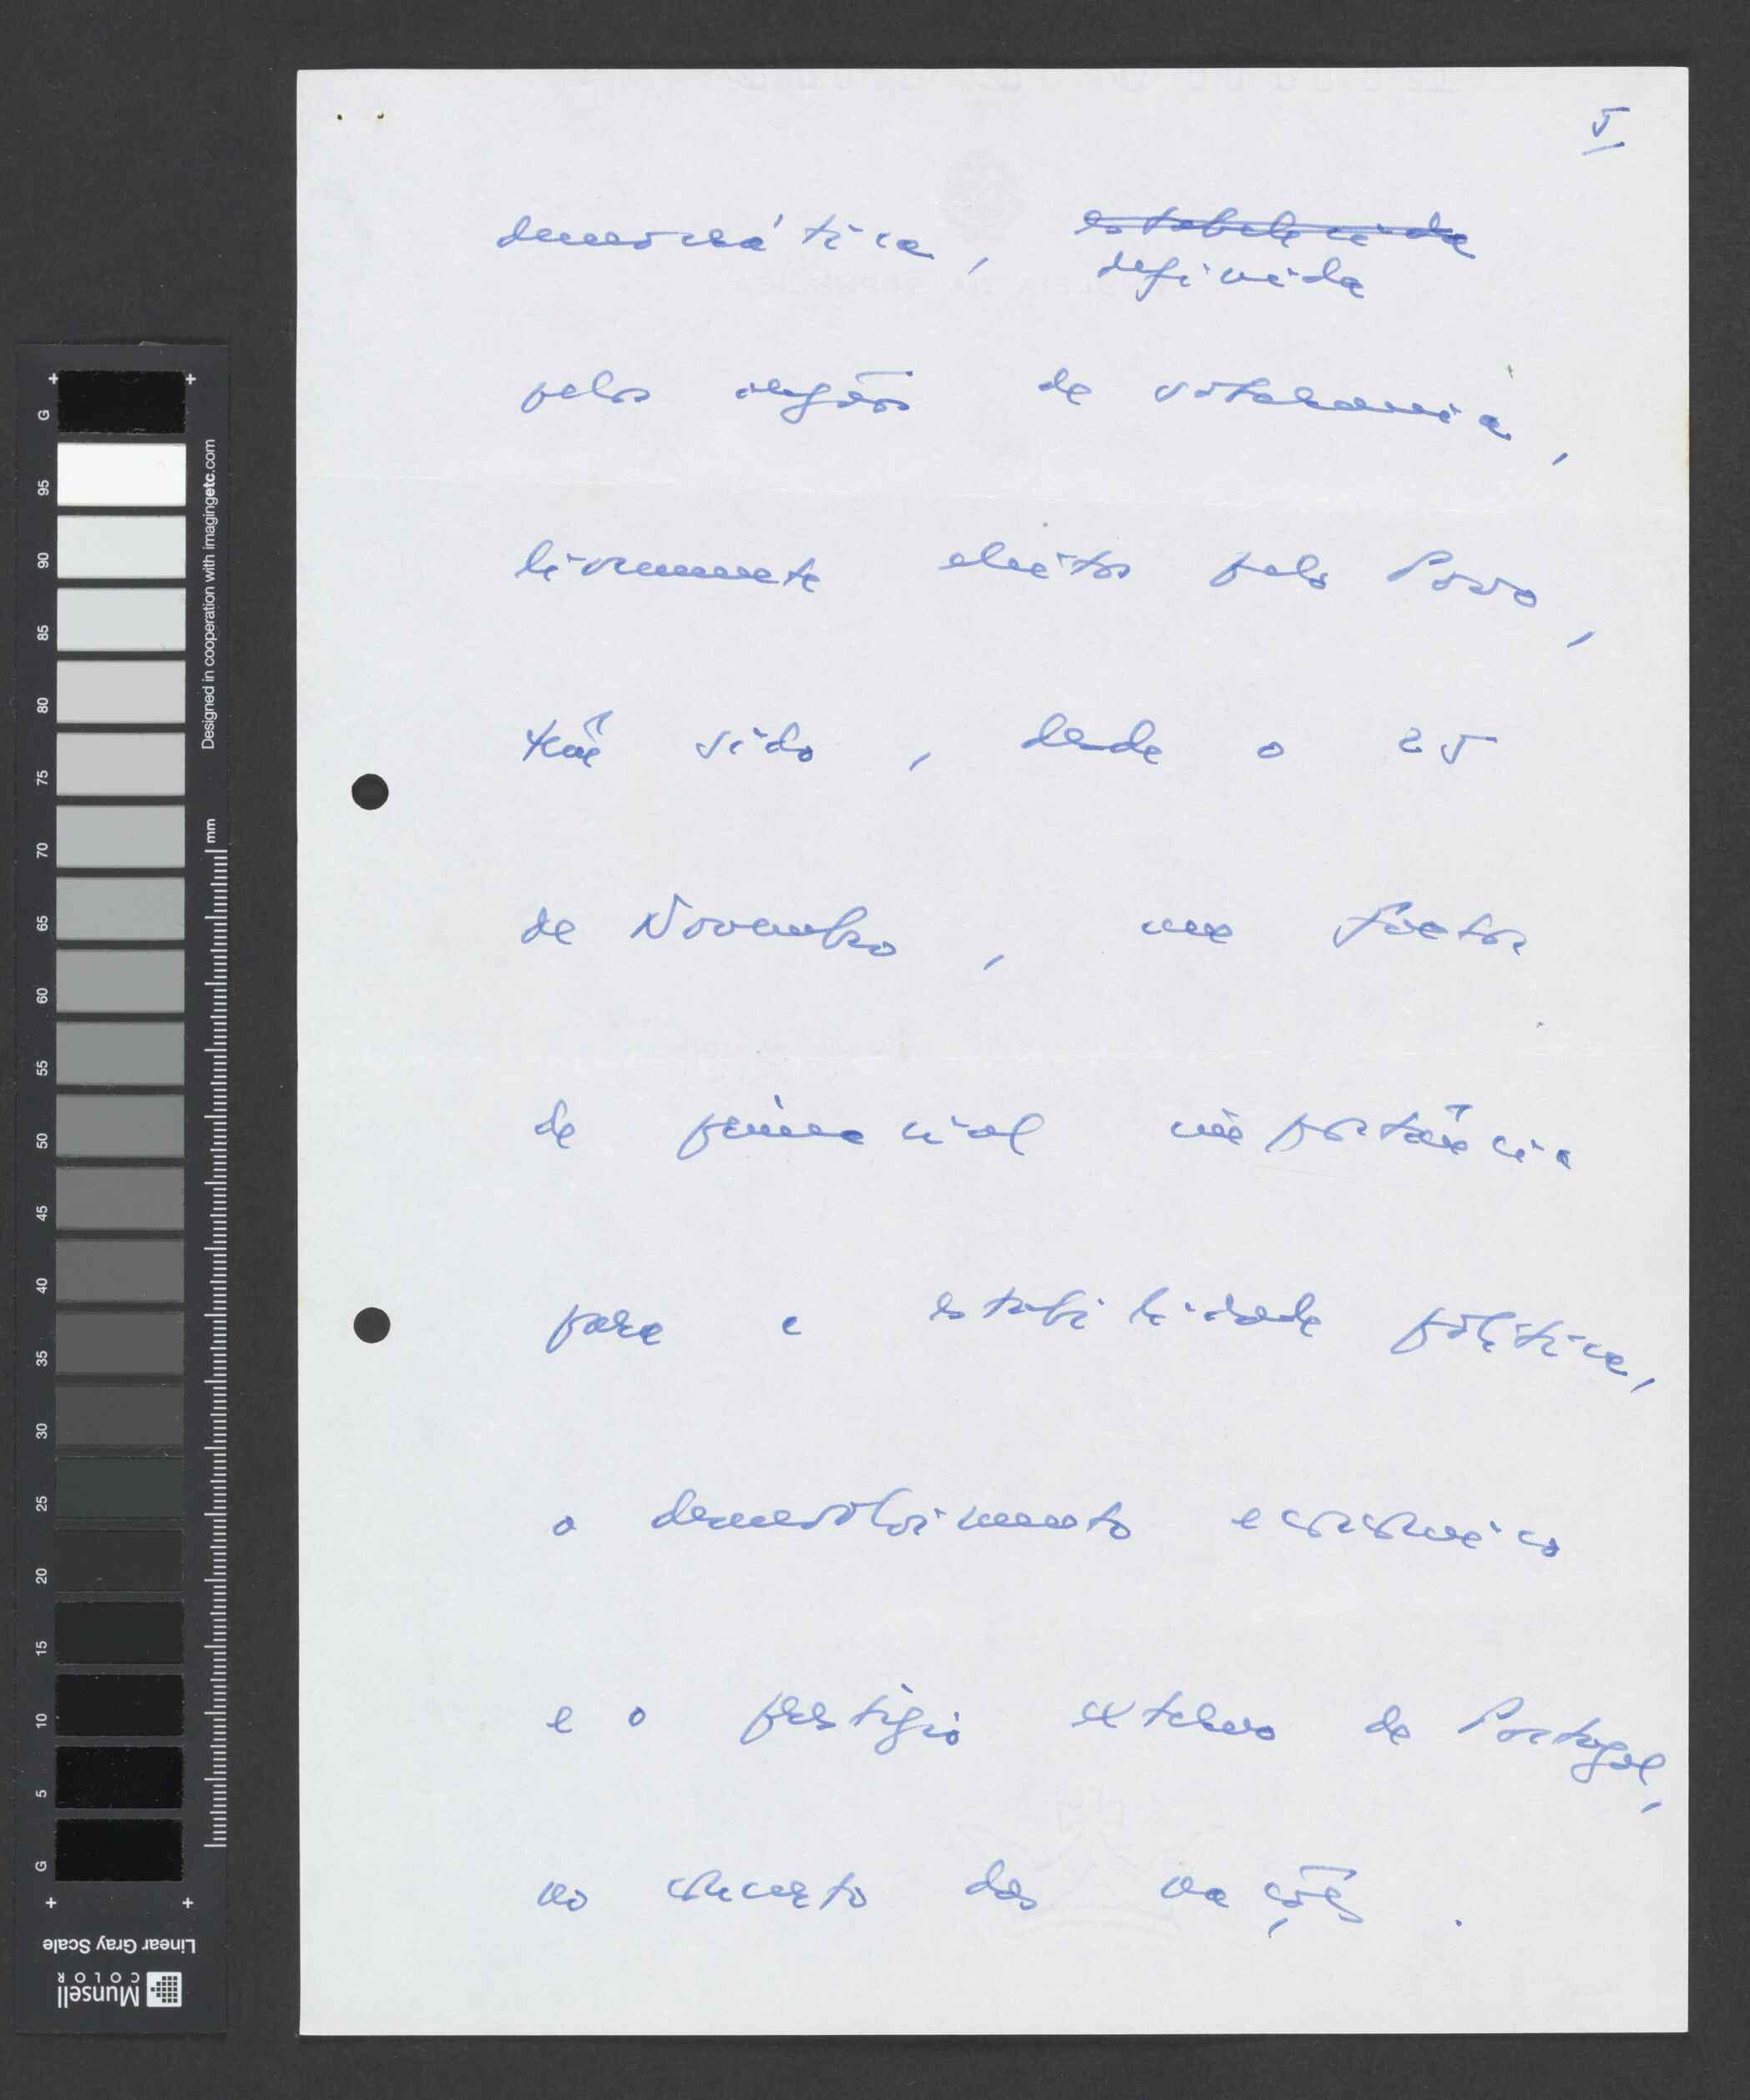 5
democrática, ~~estabelecida~~
definida
pelos orgãos de soberania,
livremente eleitos pelo Povo,
têm sido, desde o 25
de Novembro, um factor
de primacial importância
para a estabilidade política,
o desenvolvimento económico
e o prestígio externo de Portugal,
no concerto das nações.
G
95
90
85
80
75
70
65
60
55
50
45
40
35
30
25
20
15
10
5
G
mm
Designed in cooperation with imagingetc.com
Linear Gray Scale
Munsell
COLOR